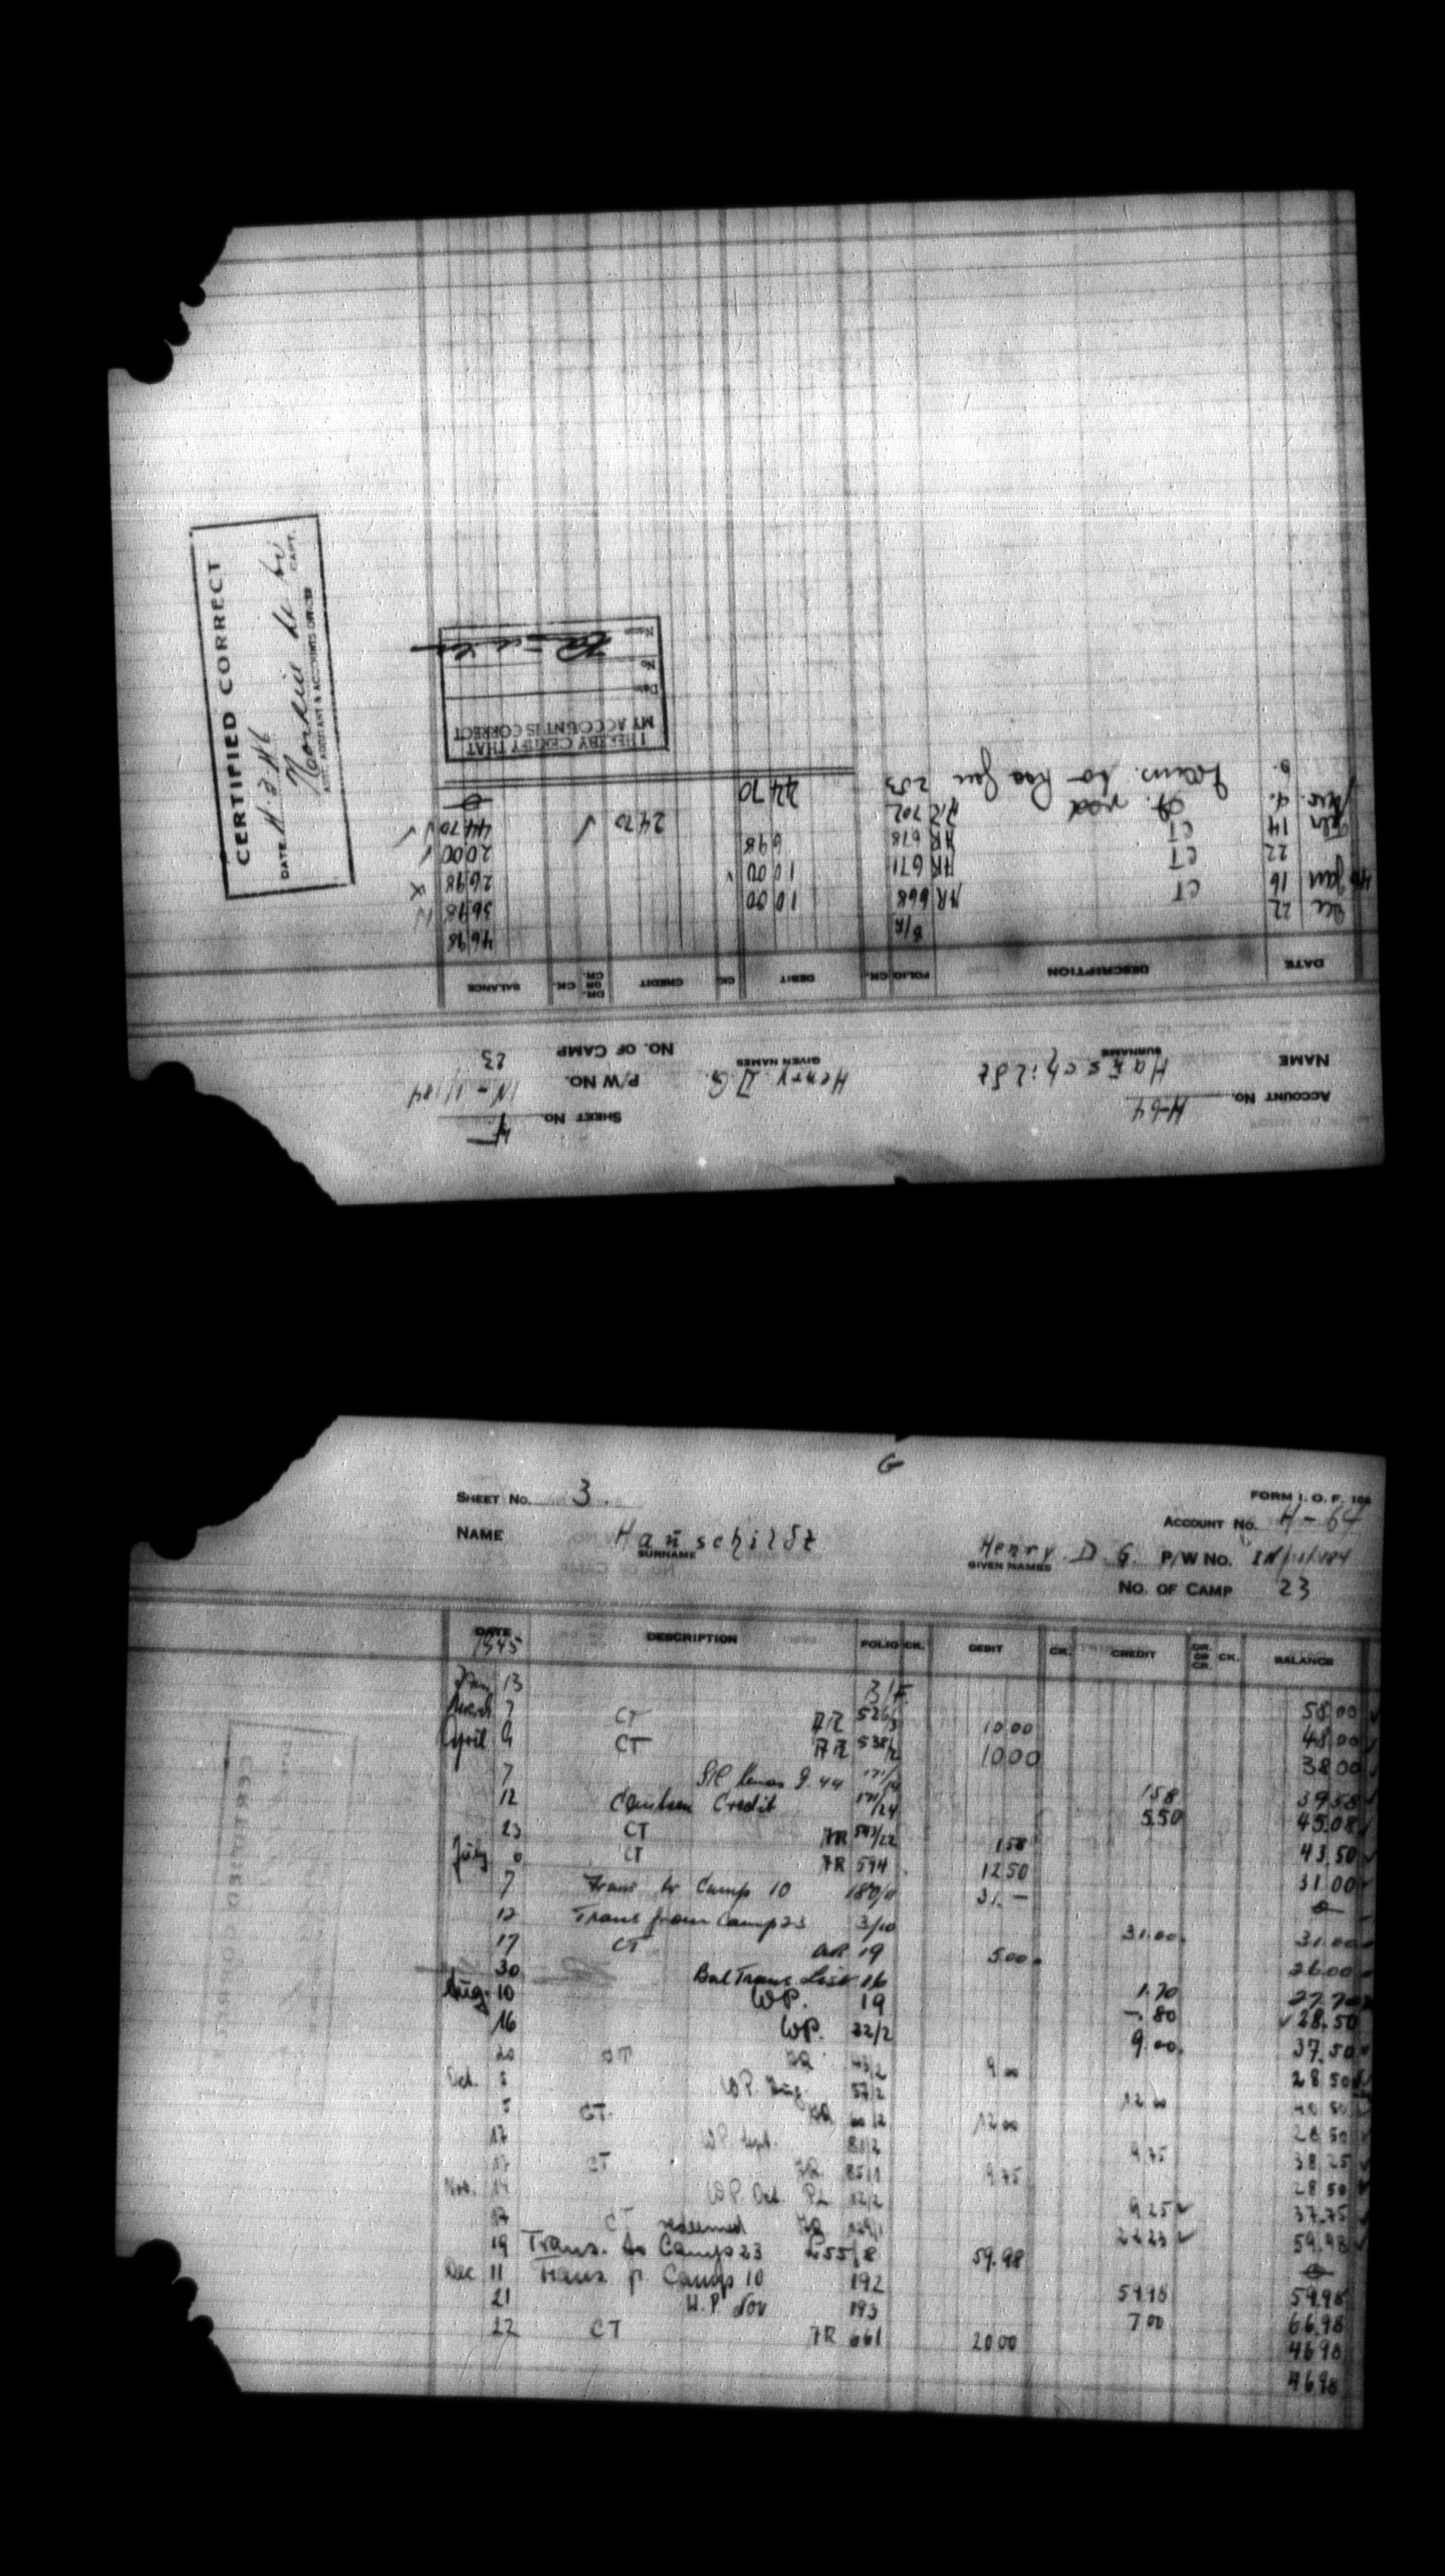 CERTIFIED CORRECT
DATE 4.3.46
CAPT.
ASST. ADJUTANT & ACCOUNTS OFFICER
SHEET No. 4
ACCOUNT No. H-64
P/W No. IN-11/184
NAME Haŭschildt Henry D.G.
SURNAME GIVEN NAMES
No. OF CAMP 23
DATE DESCRIPTION FOLIO CK. DEBIT CK. CREDIT DR. OR CR. CK. BALANCE
B/F 46 98
Dec 22 CT AR 668 10 00 36 98
46 Jan 16 CT AR 671 10 00 26 98
22 CT AR 678 6 98 20 00
Feb 14 AR 702 24 70 44 70
6. 253 44 70
I HEREBY CERTIFY THAT
MY ACCOUNT IS CORRECT
Date
No
Name
G
FORM I. O. F. 106
SHEET No. 3.
ACCOUNT No. H-64
NAME Haŭschildt Henry D G. P/W No. IN/11/184
SURNAME GIVEN NAMES
No. OF CAMP 23
DATE DESCRIPTION FOLIO CK. DEBIT CK. CREDIT DR. OR CR. CK. BALANCE
1945
Jan 13 B/F. 58 00
March 7 CT AR 526/3 10 00 48 00
April 4 CT AR 538/2 10 00 38 00
7 9.44 171/ 1 58 39 58
12 Canteen Credit 171/24 5 50 45.08
23 CT AR 543/22 1 58 43.50
July 6 CT AR 594 12 50 31 00
7 Trans to Camp 10 180/ 31.—
12 Trans from Camp 23 3/10 31.00. 31 00
17 CT AR 19 5 00. 26 00
30 Bal Trans List 16 1.70 27.70
Aug. 10 WP. 19 —.80 28.50
16 WP. 22/2 9.00. 37.50
20 CT AR 43/2 9 00 28 50
Oct. 5 WP. Aug. 57/2 12 00 40 50
5 CT. AR 60/2 12 00 28 50
17 WP. Sept. 81/2 9.75 38 25
17 CT AR 85/1 9.75 28 50
Nov. 14 WP. Oct. PL 12/2 9 25 37.75
17 CT redeemed AR 129/1 22 23 59.98
19 Trans. to Camp 23 L55/8 59.98
Dec 11 Trans. f. Camp 10 192 59 98 59.98
21 W.P. Nov 193 7 00 66.98
22 CT AR 661 20 00 46 98
46 98